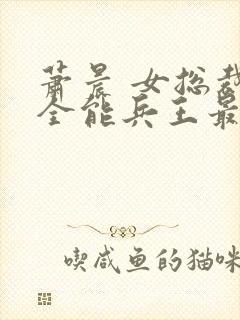 萧晨 女总裁
全能兵王最
喫咸鱼的猫咪